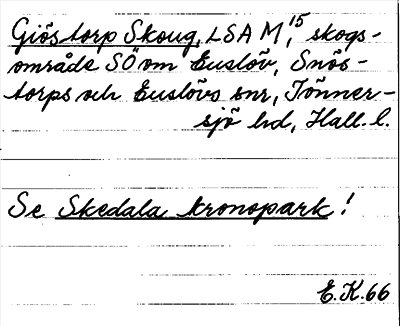 Giöstorp Skoug, LSA M, 15 skogs-
område SÖ om Euslöv, Snös-
torps och Euslövs snr, Tönner-
sjö hd, Hall. l.
Se Skedala kronopark!
E.K.66